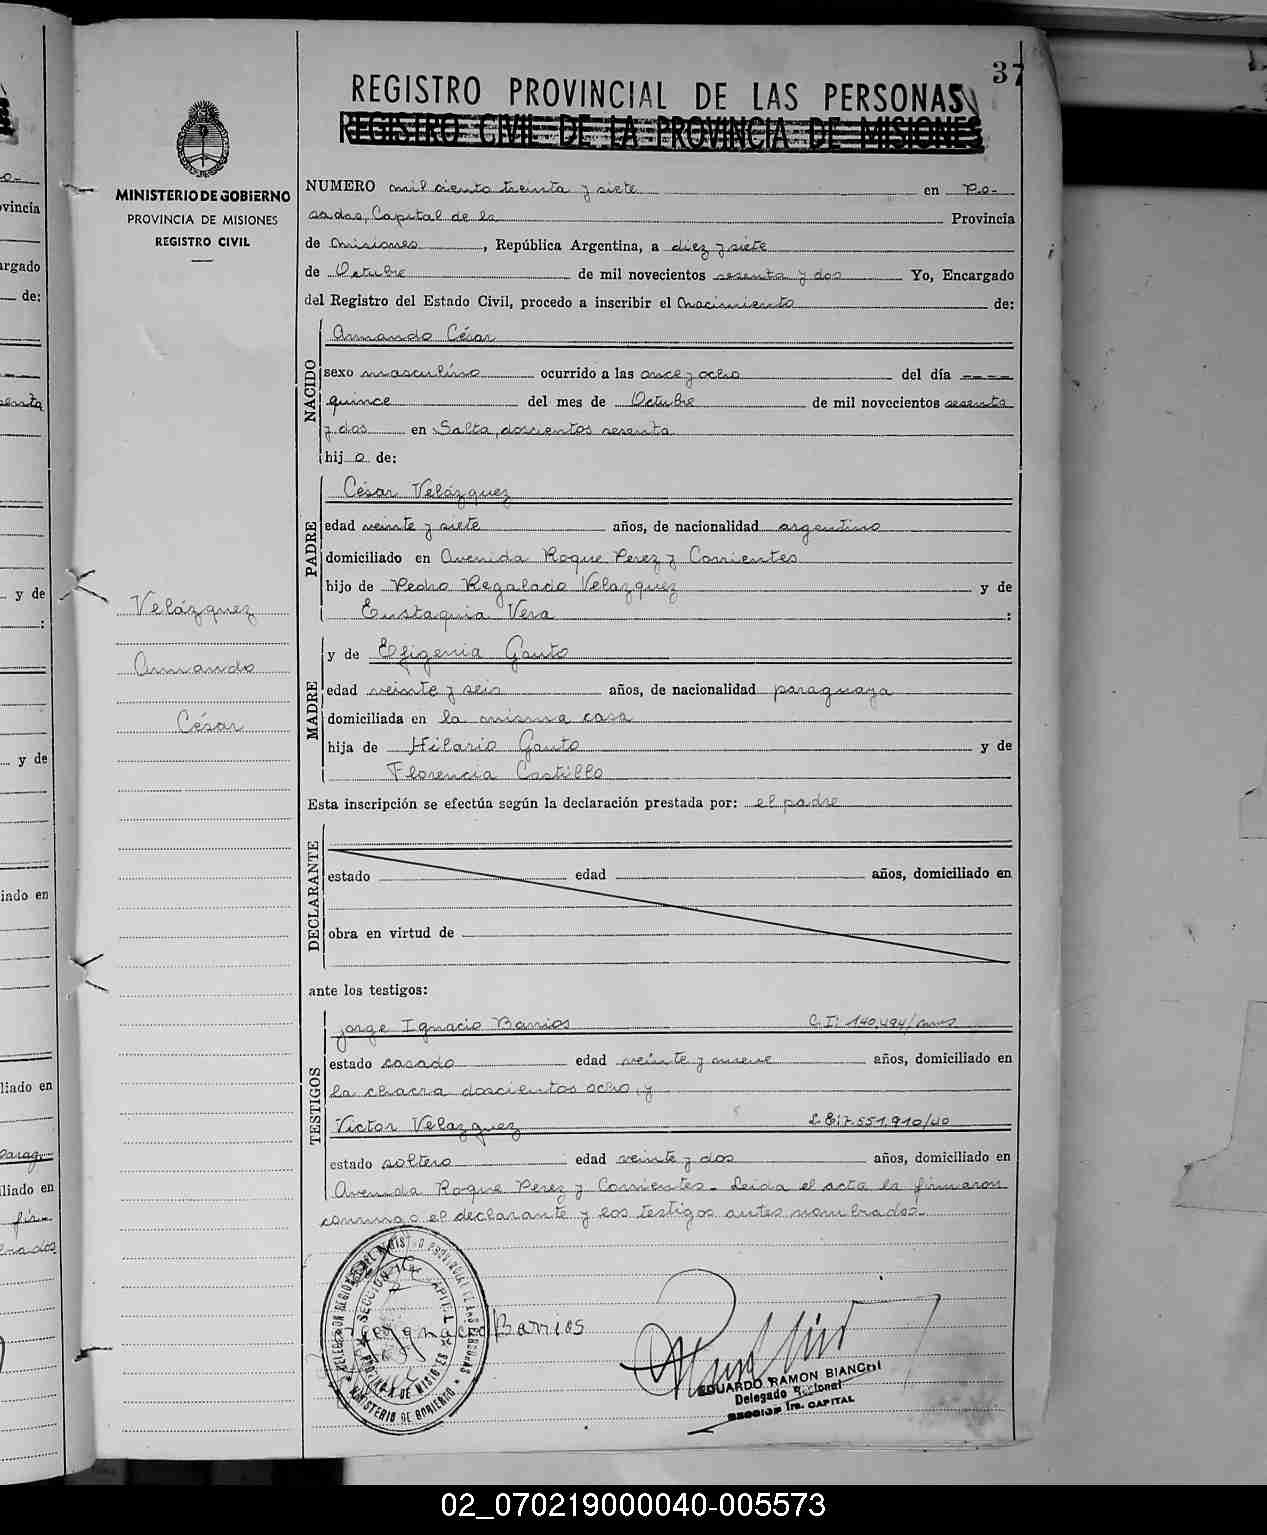 37
REGISTRO PROVINCIAL DE LAS PERSONAS
REGISTRO CIVIL DE LA PROVINCIA DE MISIONES
MINISTERIO DE GOBIERNO
PROVINCIA DE MISIONES
REGISTRO CIVIL
NUMERO mil ciento treinta y siete en Po-
sadas, Capital de la Provincia
de Misiones, República Argentina, a diez y siete
de Octubre de mil novecientos sesenta y dos Yo, Encargado
del Registro del Estado Civil, procedo a inscribir el Nacimiento de:
NACIDO
Armando César
sexo masculino ocurrido a las once y ocho del día ----
quince del mes de Octubre de mil novecientos sesenta
y dos en Salta, doscientos sesenta
hijo de:
PADRE
César Velázquez
edad veinte y siete años, de nacionalidad argentino
domiciliado en Avenida Roque Perez y Corrientes
hijo de Pedro Regalado Velazquez y de
Eustaquia Vera :
Velázquez
Armando
César
MADRE
y de Efigenia Gauto
edad veinte y seis años, de nacionalidad paraguaya
domiciliada en la misma casa
hija de Hilario Gauto y de
Florencia Castillo
Esta inscripción se efectúa según la declaración prestada por: el padre
DECLARANTE
estado edad años, domiciliado en
obra en virtud de
ante los testigos:
TESTIGOS
Jorge Ignacio Barrios C.I: 140.494/
estado casado edad veinte y nueve años, domiciliado en
la chacra doscientos ocho, y
Victor Velazquez L.E: 7.551.910/40
estado soltero edad veinte y dos años, domiciliado en
Avenida Roque Perez y Corrientes. Leida el acta la firmaron
conmigo el declarante y los testigos antes nombrados.
Ignacio Barrios
MINISTERIO DE GOBIERNO
EDUARDO RAMON BIANCHI
Delegado Regional
SECCION 1ra. CAPITAL
02_070219000040-005573